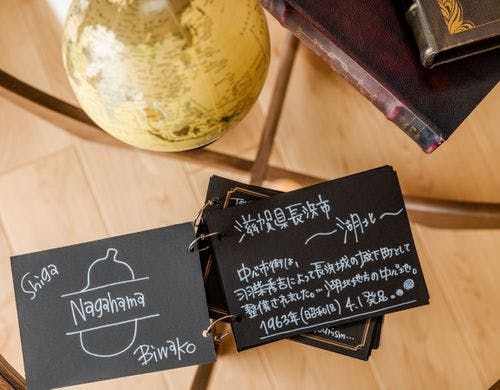 Shiga
Nagahama
Biwako
滋賀県長浜市
〜湖北〜
中心市街は、
羽柴秀吉によって長浜城の城下町として
整備されました。…湖北地方の中心地。
1963年(昭和18) 4.1 発足。
ourism...